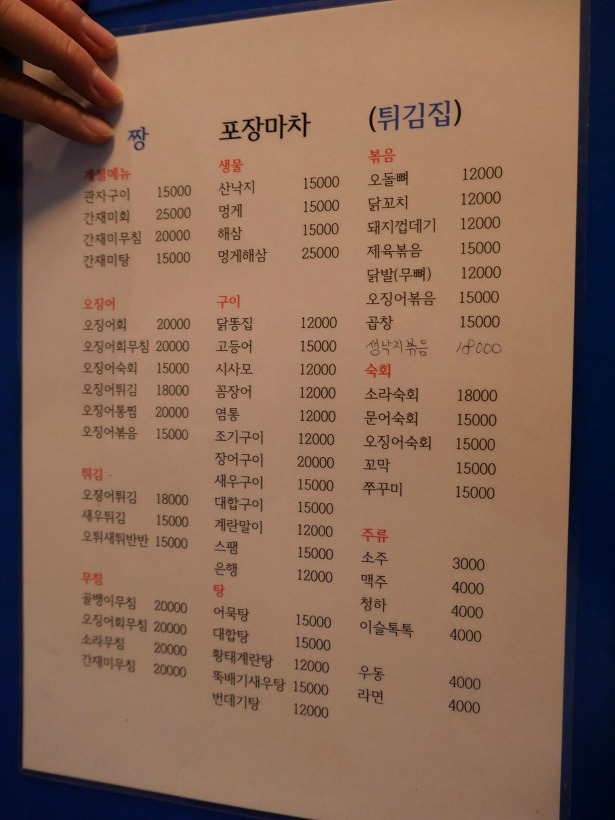 짱 포장마차 (튀김집)
계절메뉴
관자구이 15000
간재미회 25000
간재미무침 20000
간재미탕 15000
오징어
오징어회 20000
오징어회무침 20000
오징어숙회 15000
오징어튀김 18000
오징어통찜 20000
오징어볶음 15000
튀김
오징어튀김 18000
새우튀김 15000
오튀새튀반반 15000
무침
골뱅이무침 20000
오징어회무침 20000
소라무침 20000
간재미무침 20000
생물
산낙지 15000
멍게 15000
해삼 15000
멍게해삼 25000
구이
닭똥집 12000
고등어 15000
시사모 12000
꼼장어 12000
염통 12000
조기구이 12000
장어구이 20000
새우구이 15000
대합구이 15000
계란말이 12000
스팸 15000
은행 12000
탕
어묵탕 15000
대합탕 15000
황태계란탕 12000
뚝배기새우탕 15000
번데기탕 12000
볶음
오돌뼈 12000
닭꼬치 12000
돼지껍데기 12000
제육볶음 15000
닭발(무뼈) 12000
오징어볶음 15000
곱창 15000
생낙지볶음 18000
숙회
소라숙회 18000
문어숙회 15000
오징어숙회 15000
꼬막 15000
쭈꾸미 15000
주류
소주 3000
맥주 4000
청하 4000
이슬톡톡 4000
우동 4000
라면 4000